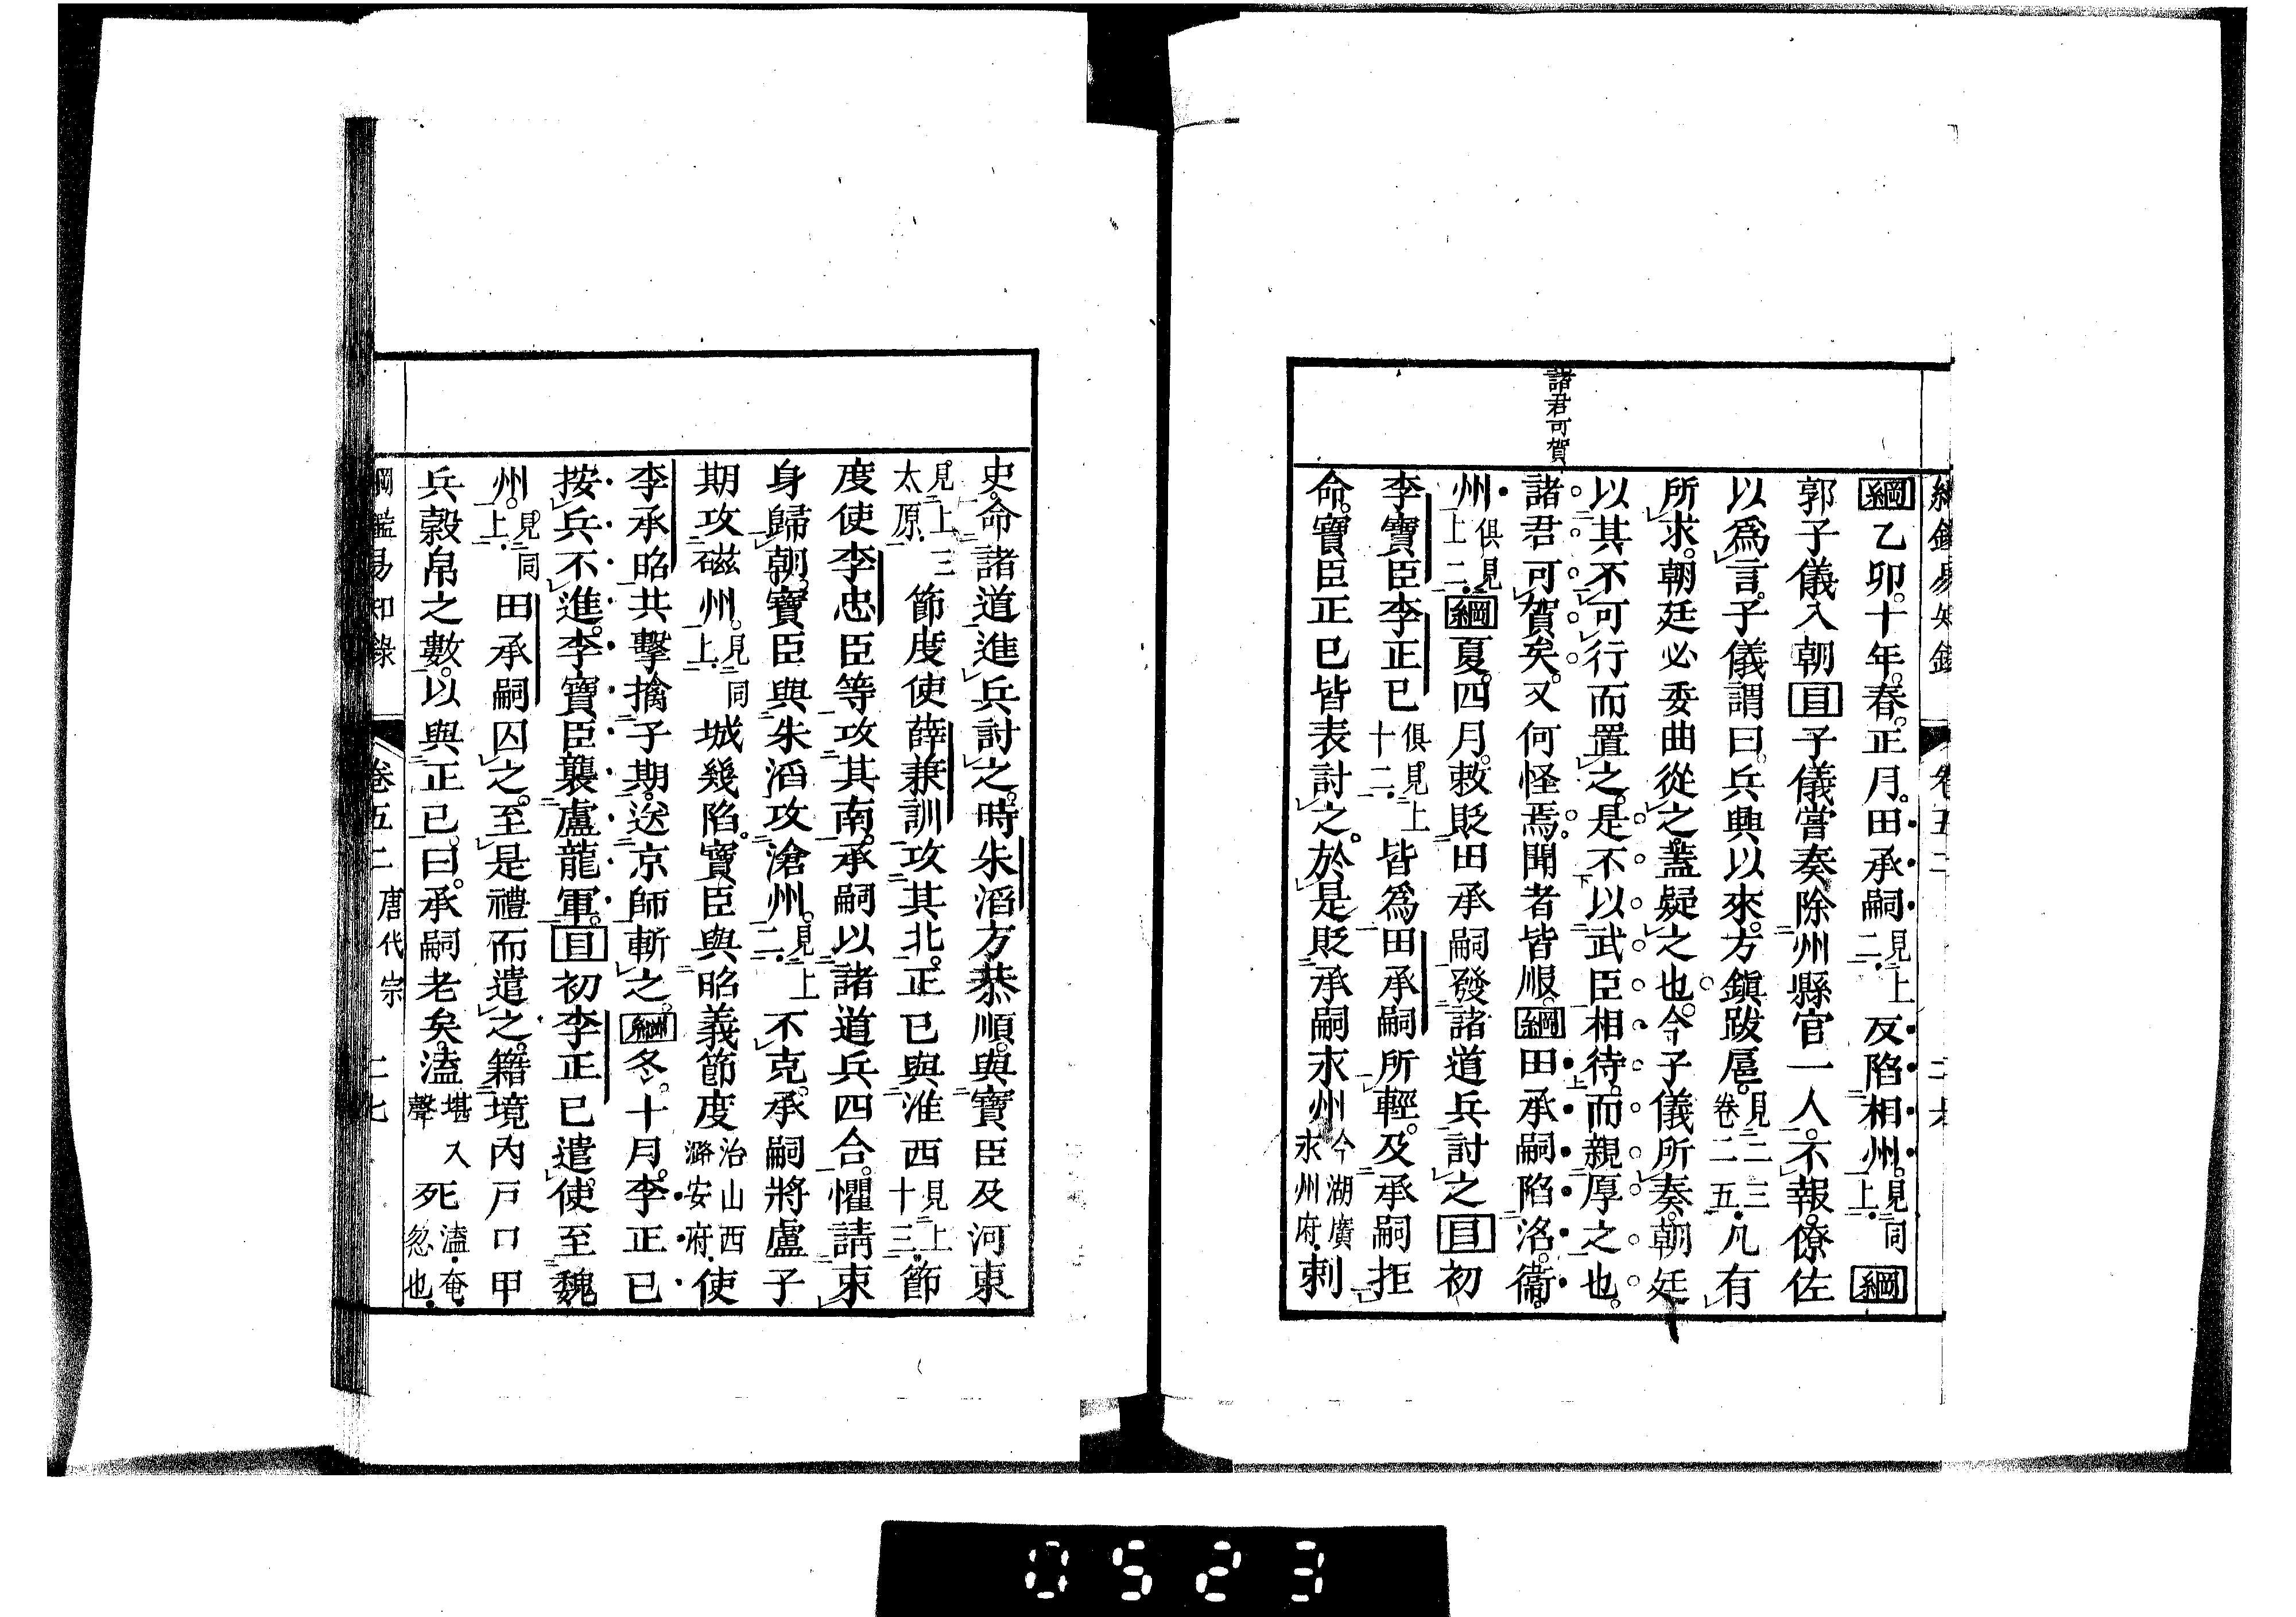 綱鑑易知錄 卷五二 二六
諸君可賀
綱乙卯。十年。春。正月。田承嗣見上二。反陷相州。見同上。綱
郭子儀入朝目子儀嘗奏除州縣官一人。不報。僚佐
以爲言。子儀謂曰。兵興以來。方鎭跋扈。見二三卷二五。凡有
所求。朝廷必委曲從之。蓋疑之也。今子儀所奏。朝廷
以其不可行而置之。是不以武臣相待。而親厚之也。
諸君可賀矣。又何怪焉。聞者皆服。綱田承嗣陷洛。衞。
州俱見上二。綱夏。四月。敕貶田承嗣發諸道兵討之目初
李寶臣李正已俱見上十二。皆爲田承嗣所輕。及承嗣拒
命。寶臣正已皆表討之。於是貶承嗣永州今湖廣永州府。刺
史。命諸道進兵討之。時朱滔方恭順。與寶臣及河東
見上三太原。節度使薛兼訓攻其北。正已與淮西見上十三。節
度使李忠臣等攻其南。承嗣以諸道兵四合。懼請束
身歸朝。寶臣與朱滔攻滄州。見上二。不克。承嗣將盧子
期攻磁州。見同上。城幾陷。寶臣與昭義節度治山西潞安府。使
李承昭共擊擒子期。送京師斬之。綱冬。十月。李正已
按兵不進。李寶臣襲盧龍軍。目初李正已遣使至魏
州。見同上。田承嗣囚之。至是禮而遣之。籍境內戶口甲
兵穀帛之數。以與正已。曰。承嗣老矣。溘堪入聲死溘。奄忽也。
綱鑑易知錄 卷五二 唐代宗 二七
0523